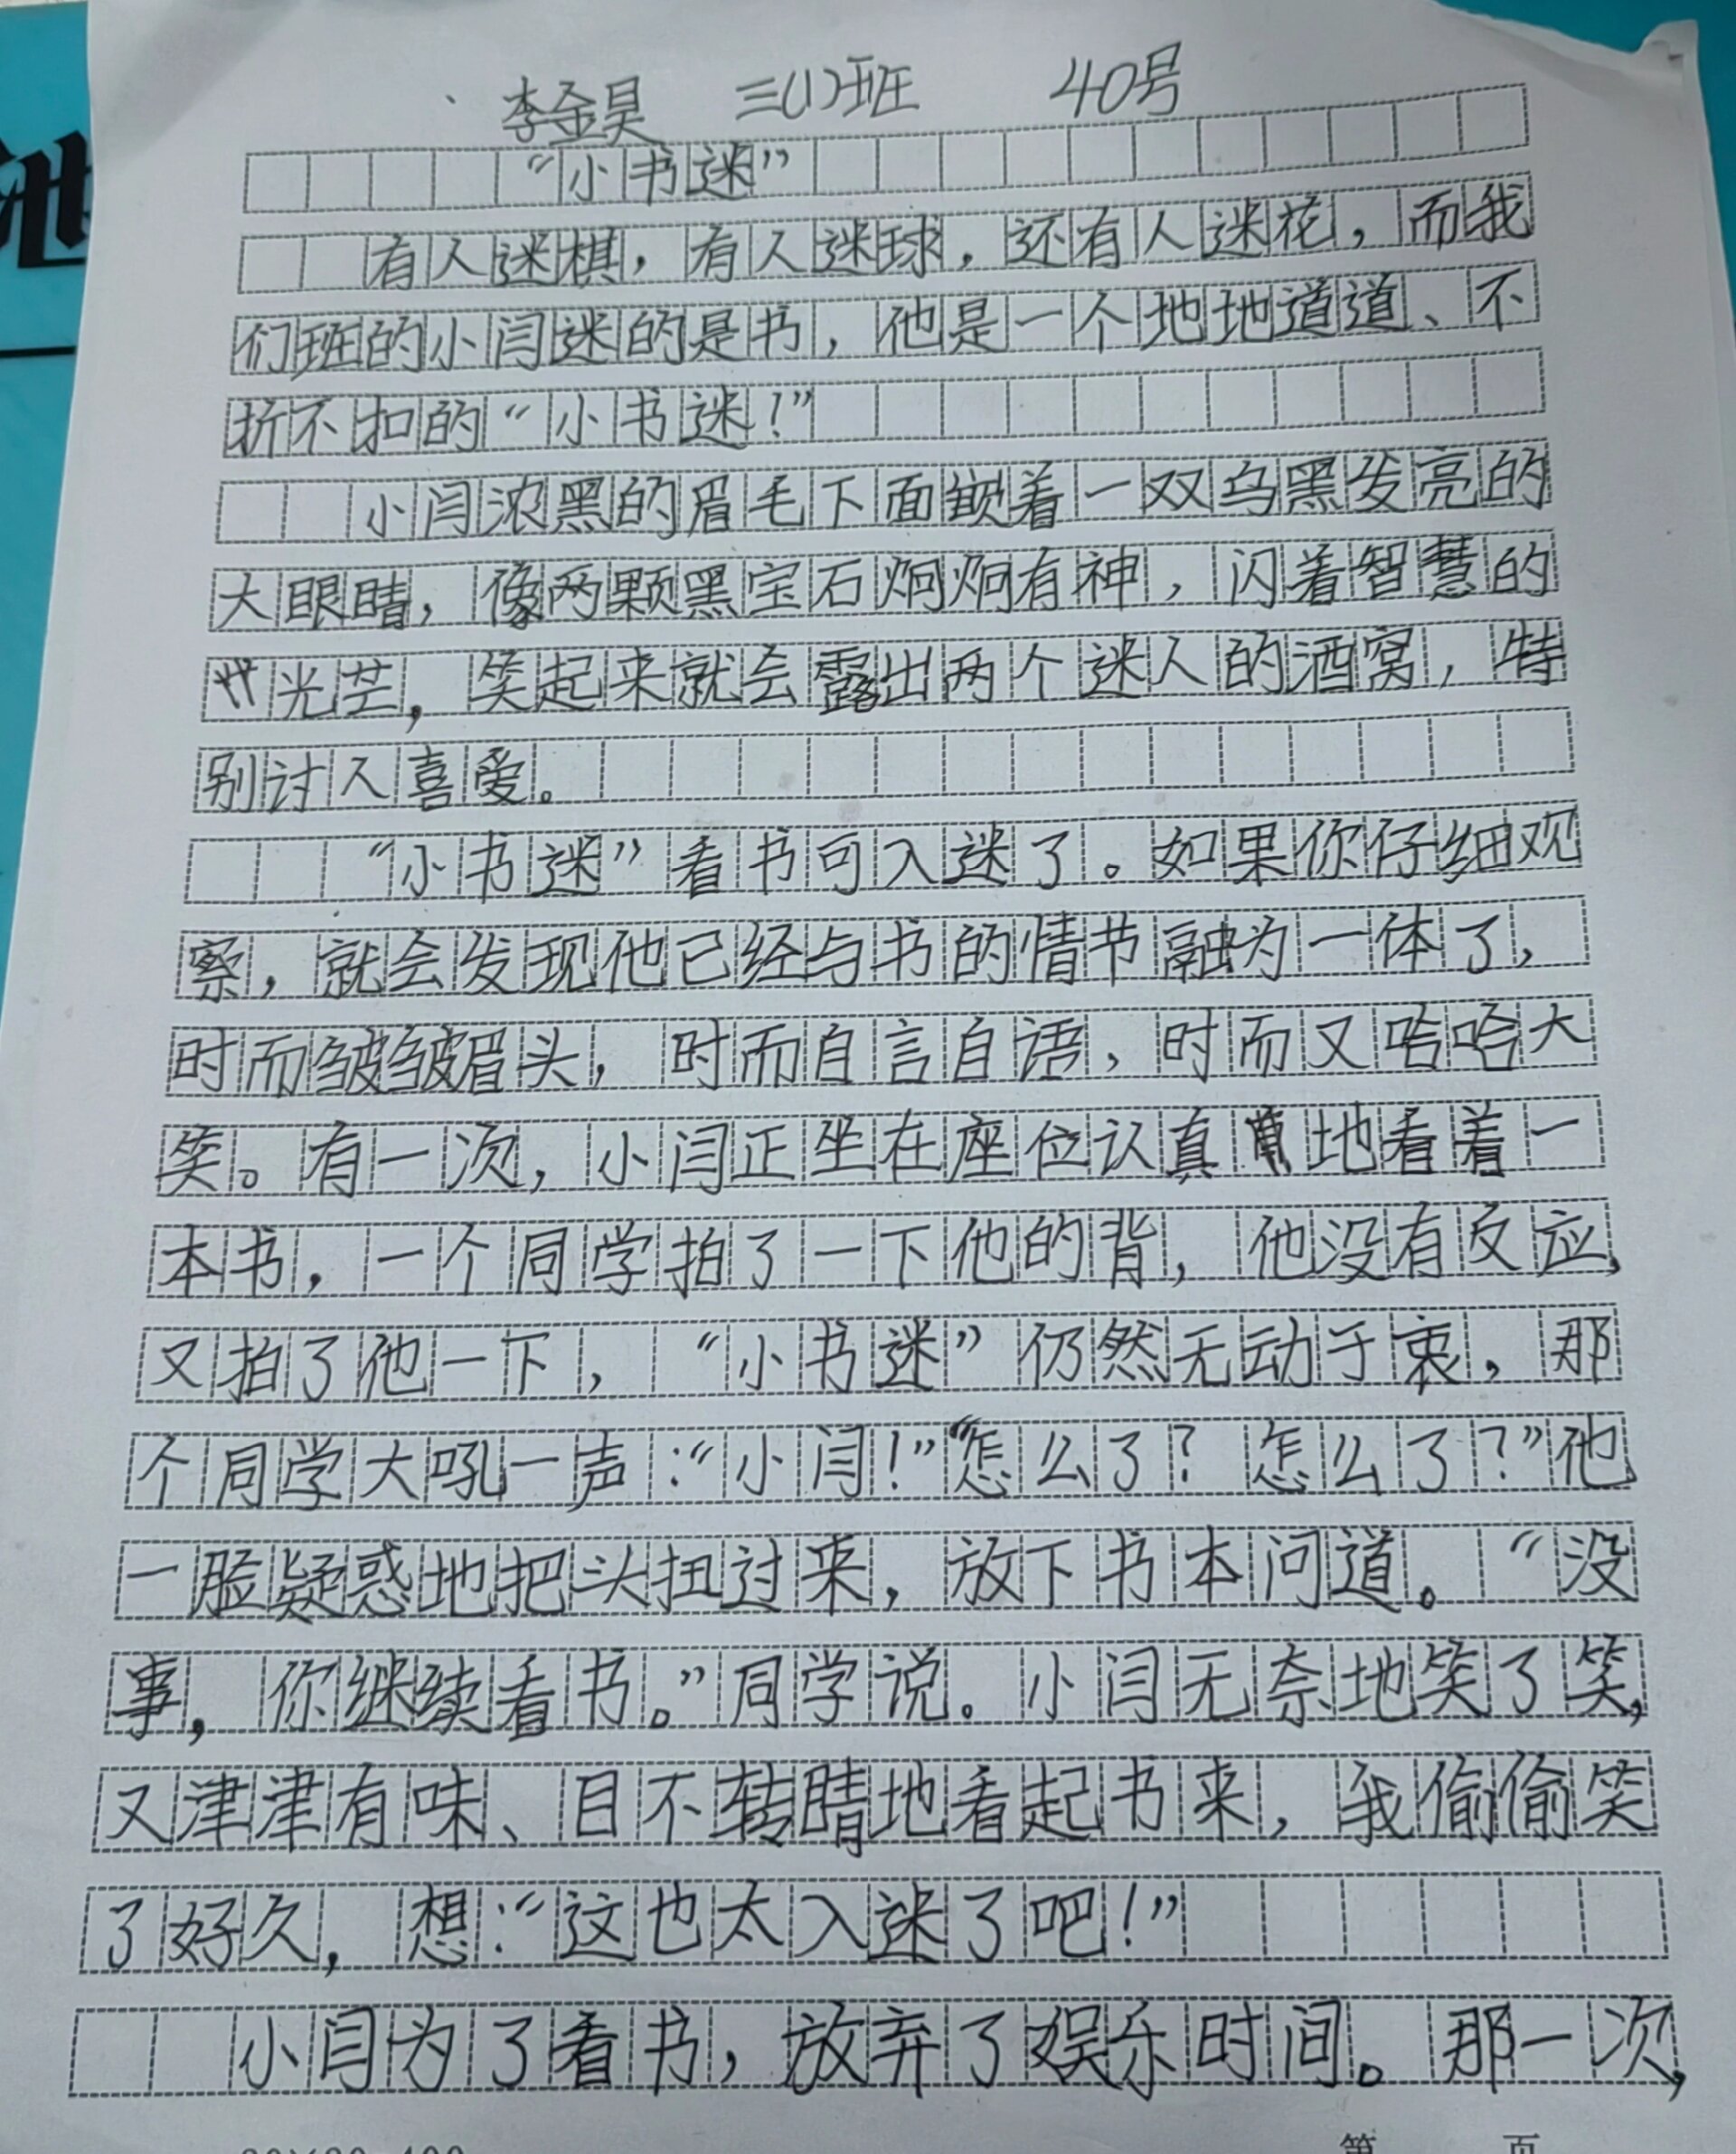 李金昊 三(1)班 40号
“小书迷”
有人迷棋，有人迷球，还有人迷花，而我
们班的小闫迷的是书，他是一个地地道道、不
折不扣的“小书迷！”
小闫浓黑的眉毛下面嵌着一双乌黑发亮的
大眼睛，像两颗黑宝石炯炯有神，闪着智慧的
光芒，笑起来就会露出两个迷人的酒窝，特
别讨人喜爱。
“小书迷”看书可入迷了。如果你仔细观
察，就会发现他已经与书的情节融为一体了，
时而皱皱眉头，时而自言自语，时而又哈哈大
笑。有一次，小闫正坐在座位认真地看着一
本书，一个同学拍了一下他的背，他没有反应，
又拍了他一下，“小书迷”仍然无动于衷，那
个同学大吼一声：“小闫！”“怎么了？怎么了？”他
一脸疑惑地把头扭过来，放下书本问道。“没
事，你继续看书。”同学说。小闫无奈地笑了笑，
又津津有味、目不转睛地看起书来，我偷偷笑
了好久，想：“这也太入迷了吧！”
小闫为了看书，放弃了娱乐时间。那一次，
第 页